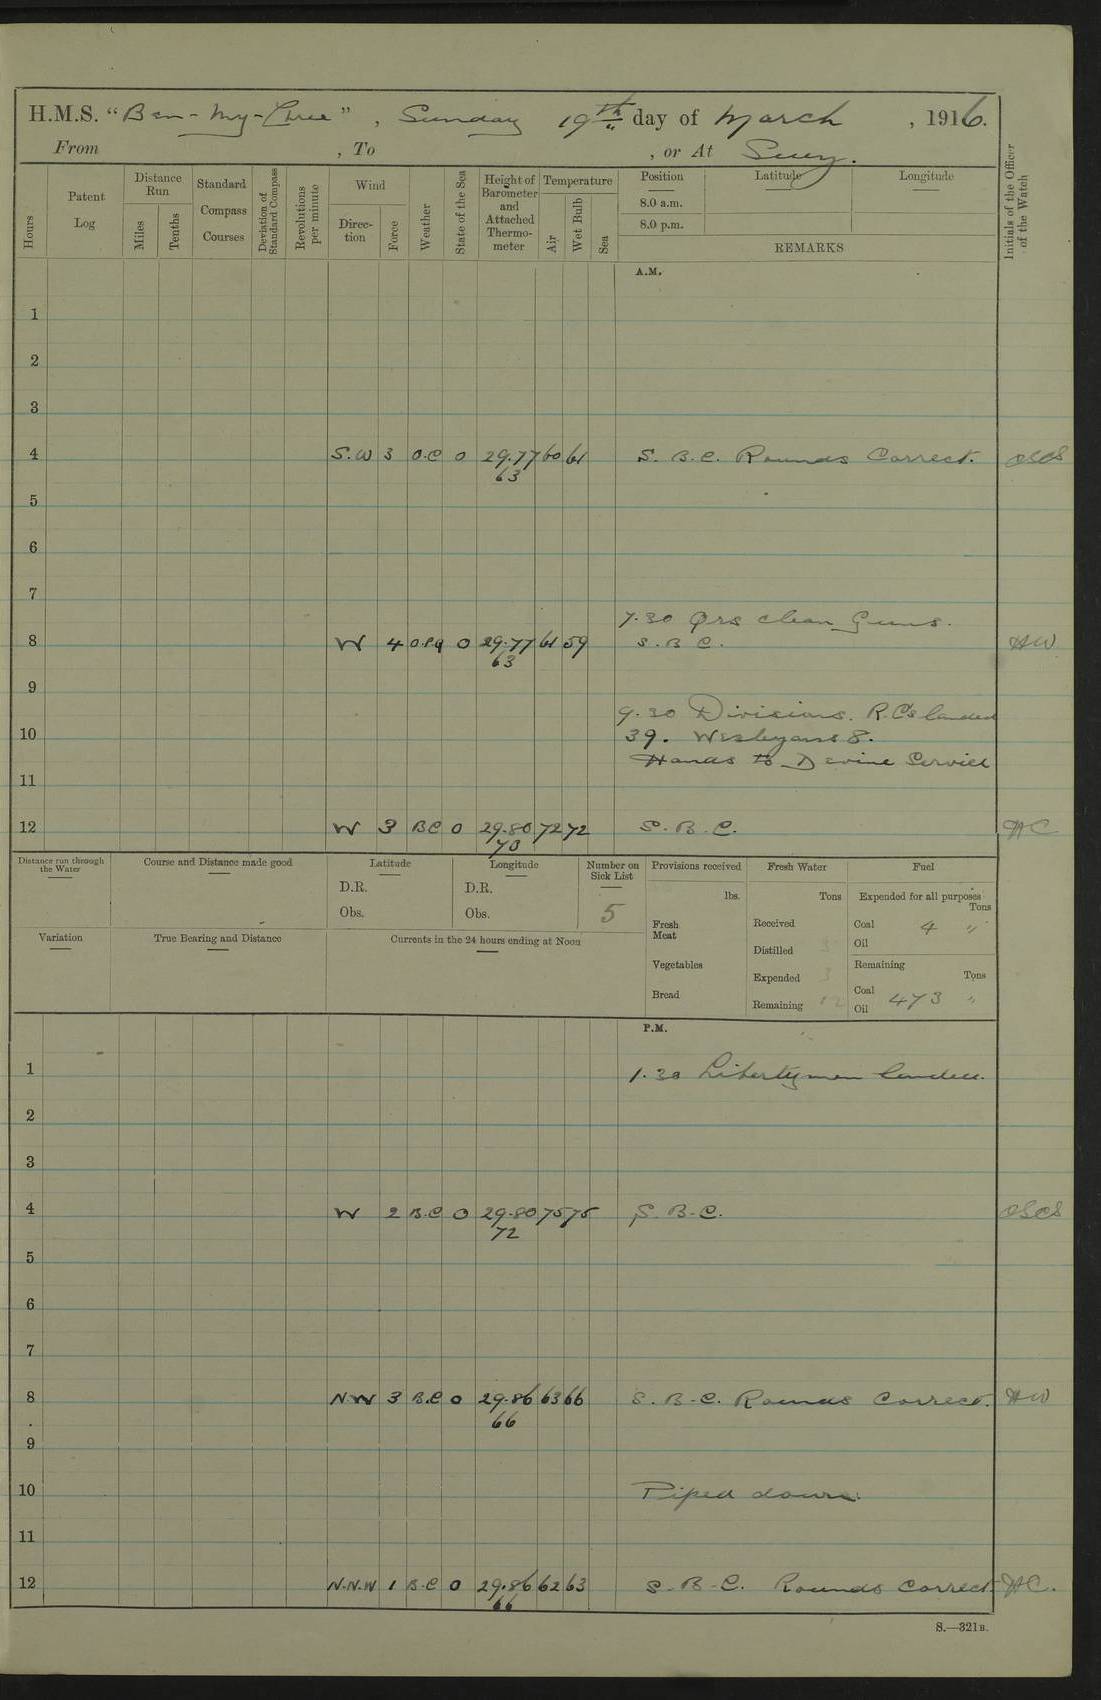 H.M.S. "Ben-My-Chree", Sunday 19th day of March, 1916.
From , To , or At Suez.
Hours
Patent Log
Distance Run
Miles
Tenths
Standard Compass Courses
Deviation of Standard Compass
Revolutions per minute
Wind
Direction
Force
Weather
State of the Sea
Height of Barometer and Attached Thermometer
Temperature
Air
Wet Bulb
Sea
Position Latitude Longitude
8.0 a.m.
8.0 p.m.
REMARKS
Initials of the Officer of the Watch
A.M.
1
2
3
4 S.W 3 O.C 0 29.77 60 61 S. B.C. Rounds Correct.
63
5
6
7
7.30 Qrs clean Guns.
8 W 4 0 29.77 61 59 S.B C. HW
63
9
9.30 Divisions. R.Cs landed
10 39. Wesleyans 8.
Hands to Devine Service
11
12 W 3 BC 0 29.80 72 72 S.B.C. HC
70
Distance run through the Water
Course and Distance made good
Latitude
D.R.
Obs.
Longitude
D.R.
Obs.
Number on Sick List
5
Provisions received
lbs.
Fresh Meat
Vegetables
Bread
Fresh Water
Tons
Received
Distilled
Expended 3
Remaining 12
Fuel
Expended for all purposes
Tons
Coal 4 "
Oil
Remaining
Tons
Coal 473 "
Oil
Variation
True Bearing and Distance
Currents in the 24 hours ending at Noon
P.M.
1 1.30 Libertymen landed.
2
3
4 W 2 B.C 0 29.80 75 75 S.B-C.
72
5
6
7
8 NW 3 B.C 0 29.86 63 66 S.B-C. Rounds Correct. HW
66
9
10 Piped down.
11
12 N.N.W 1 B-C 0 29.86 62 63 S-B-C. Rounds Correct HC.
66
S.—321B.